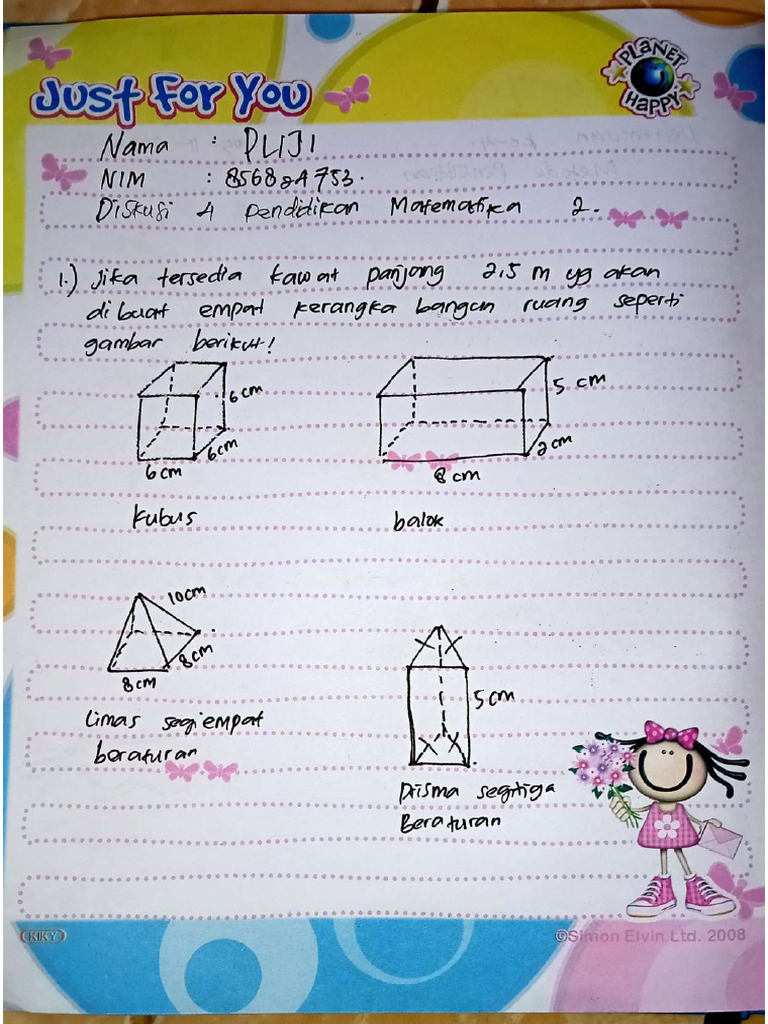 Just For You
PLANET
HAPPY
Nama : PUJI
NIM : 856824753.
Diskusi 4 Pendidikan Matematika 2.
1.) Jika tersedia kawat panjang 2,5 m yg akan
dibuat empat kerangka bangun ruang seperti
gambar berikut!
6 cm
6 cm
6 cm
Kubus
5 cm
2 cm
8 cm
balok
10 cm
8 cm
8 cm
Limas segiempat
beraturan
5 cm
Prisma segitiga
Beraturan
KIKY
©Simon Elvin Ltd. 2008